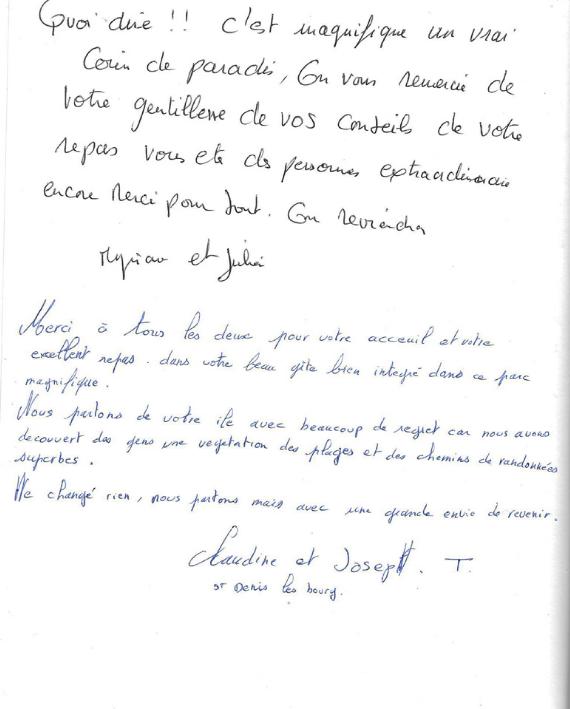 Quoi dire !! c'est magnifique un vrai
Coin de paradis, On vous remercie de
Votre gentillesse de vos conseils de votre
repas vous ete des personnes extraordinaire
encore Merci pour tout. On reviendra
Myriam et Julie
Merci à tous les deux pour votre acceuil et votre
excellent repas. dans votre beau gîte bien integré dans ce parc
magnifique.
Nous partons de votre ile avec beaucoup de regret car nous avons
decouvert des gens une vegetation des plages et des chemins de randonnées
superbes.
Ne changé rien, nous partons mais avec une grande envie de revenir.
Claudine et Joseph. T.
ST Denis les bourg.